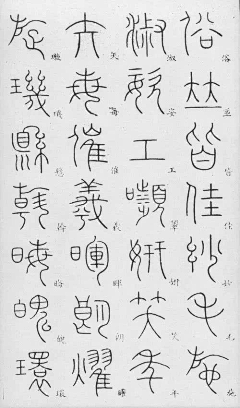 俗並皆佳妙毛施
淑姿工嚬妍笑年
矢每催羲暉朗曜
璇璣懸斡晦魄環